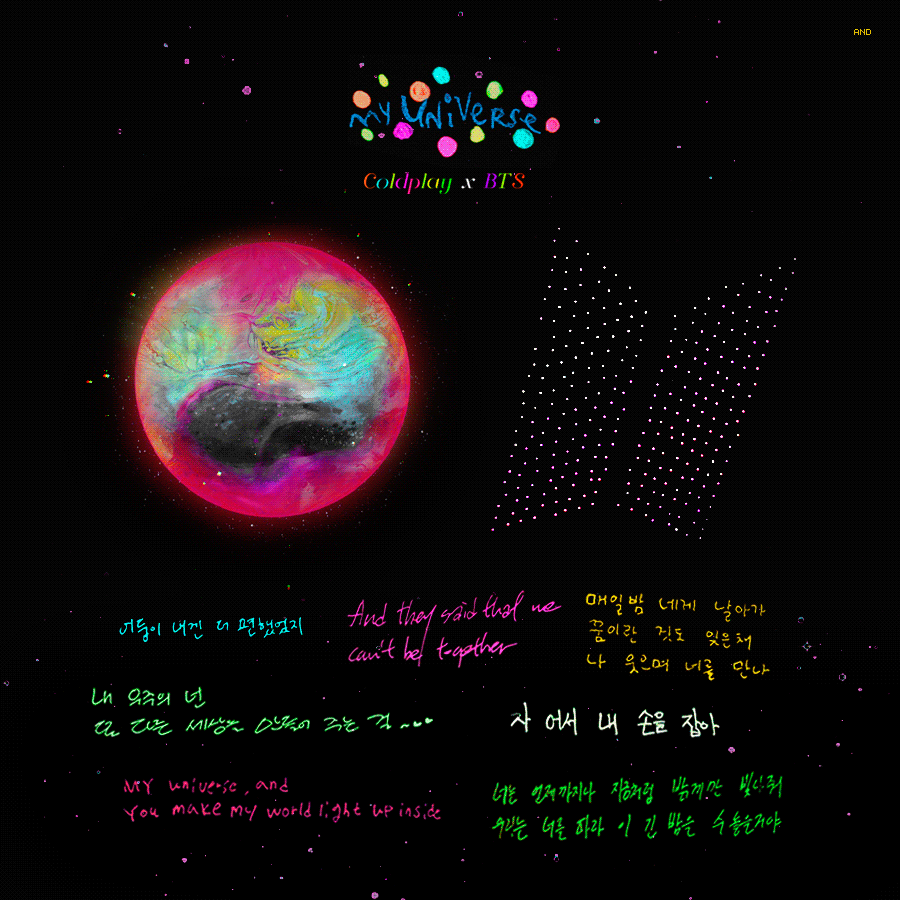 AND
MY UNiVeRSe
Coldplay x BTS
어둠이 내겐 더 편했었지
And they said that we
can't be together
매일 밤 네게 날아가
꿈이란 것도 잊은 채
나 웃으며 너를 만나
내 우주의 넌
또 다른 세상을 만들어 주는 걸
자 어서 내 손을 잡아
MY universe, and
You make my world light up inside
너는 언제까지나 지금처럼 밝게만 빛나줘
우리는 너를 따라 이 긴 밤을 수놓을 거야